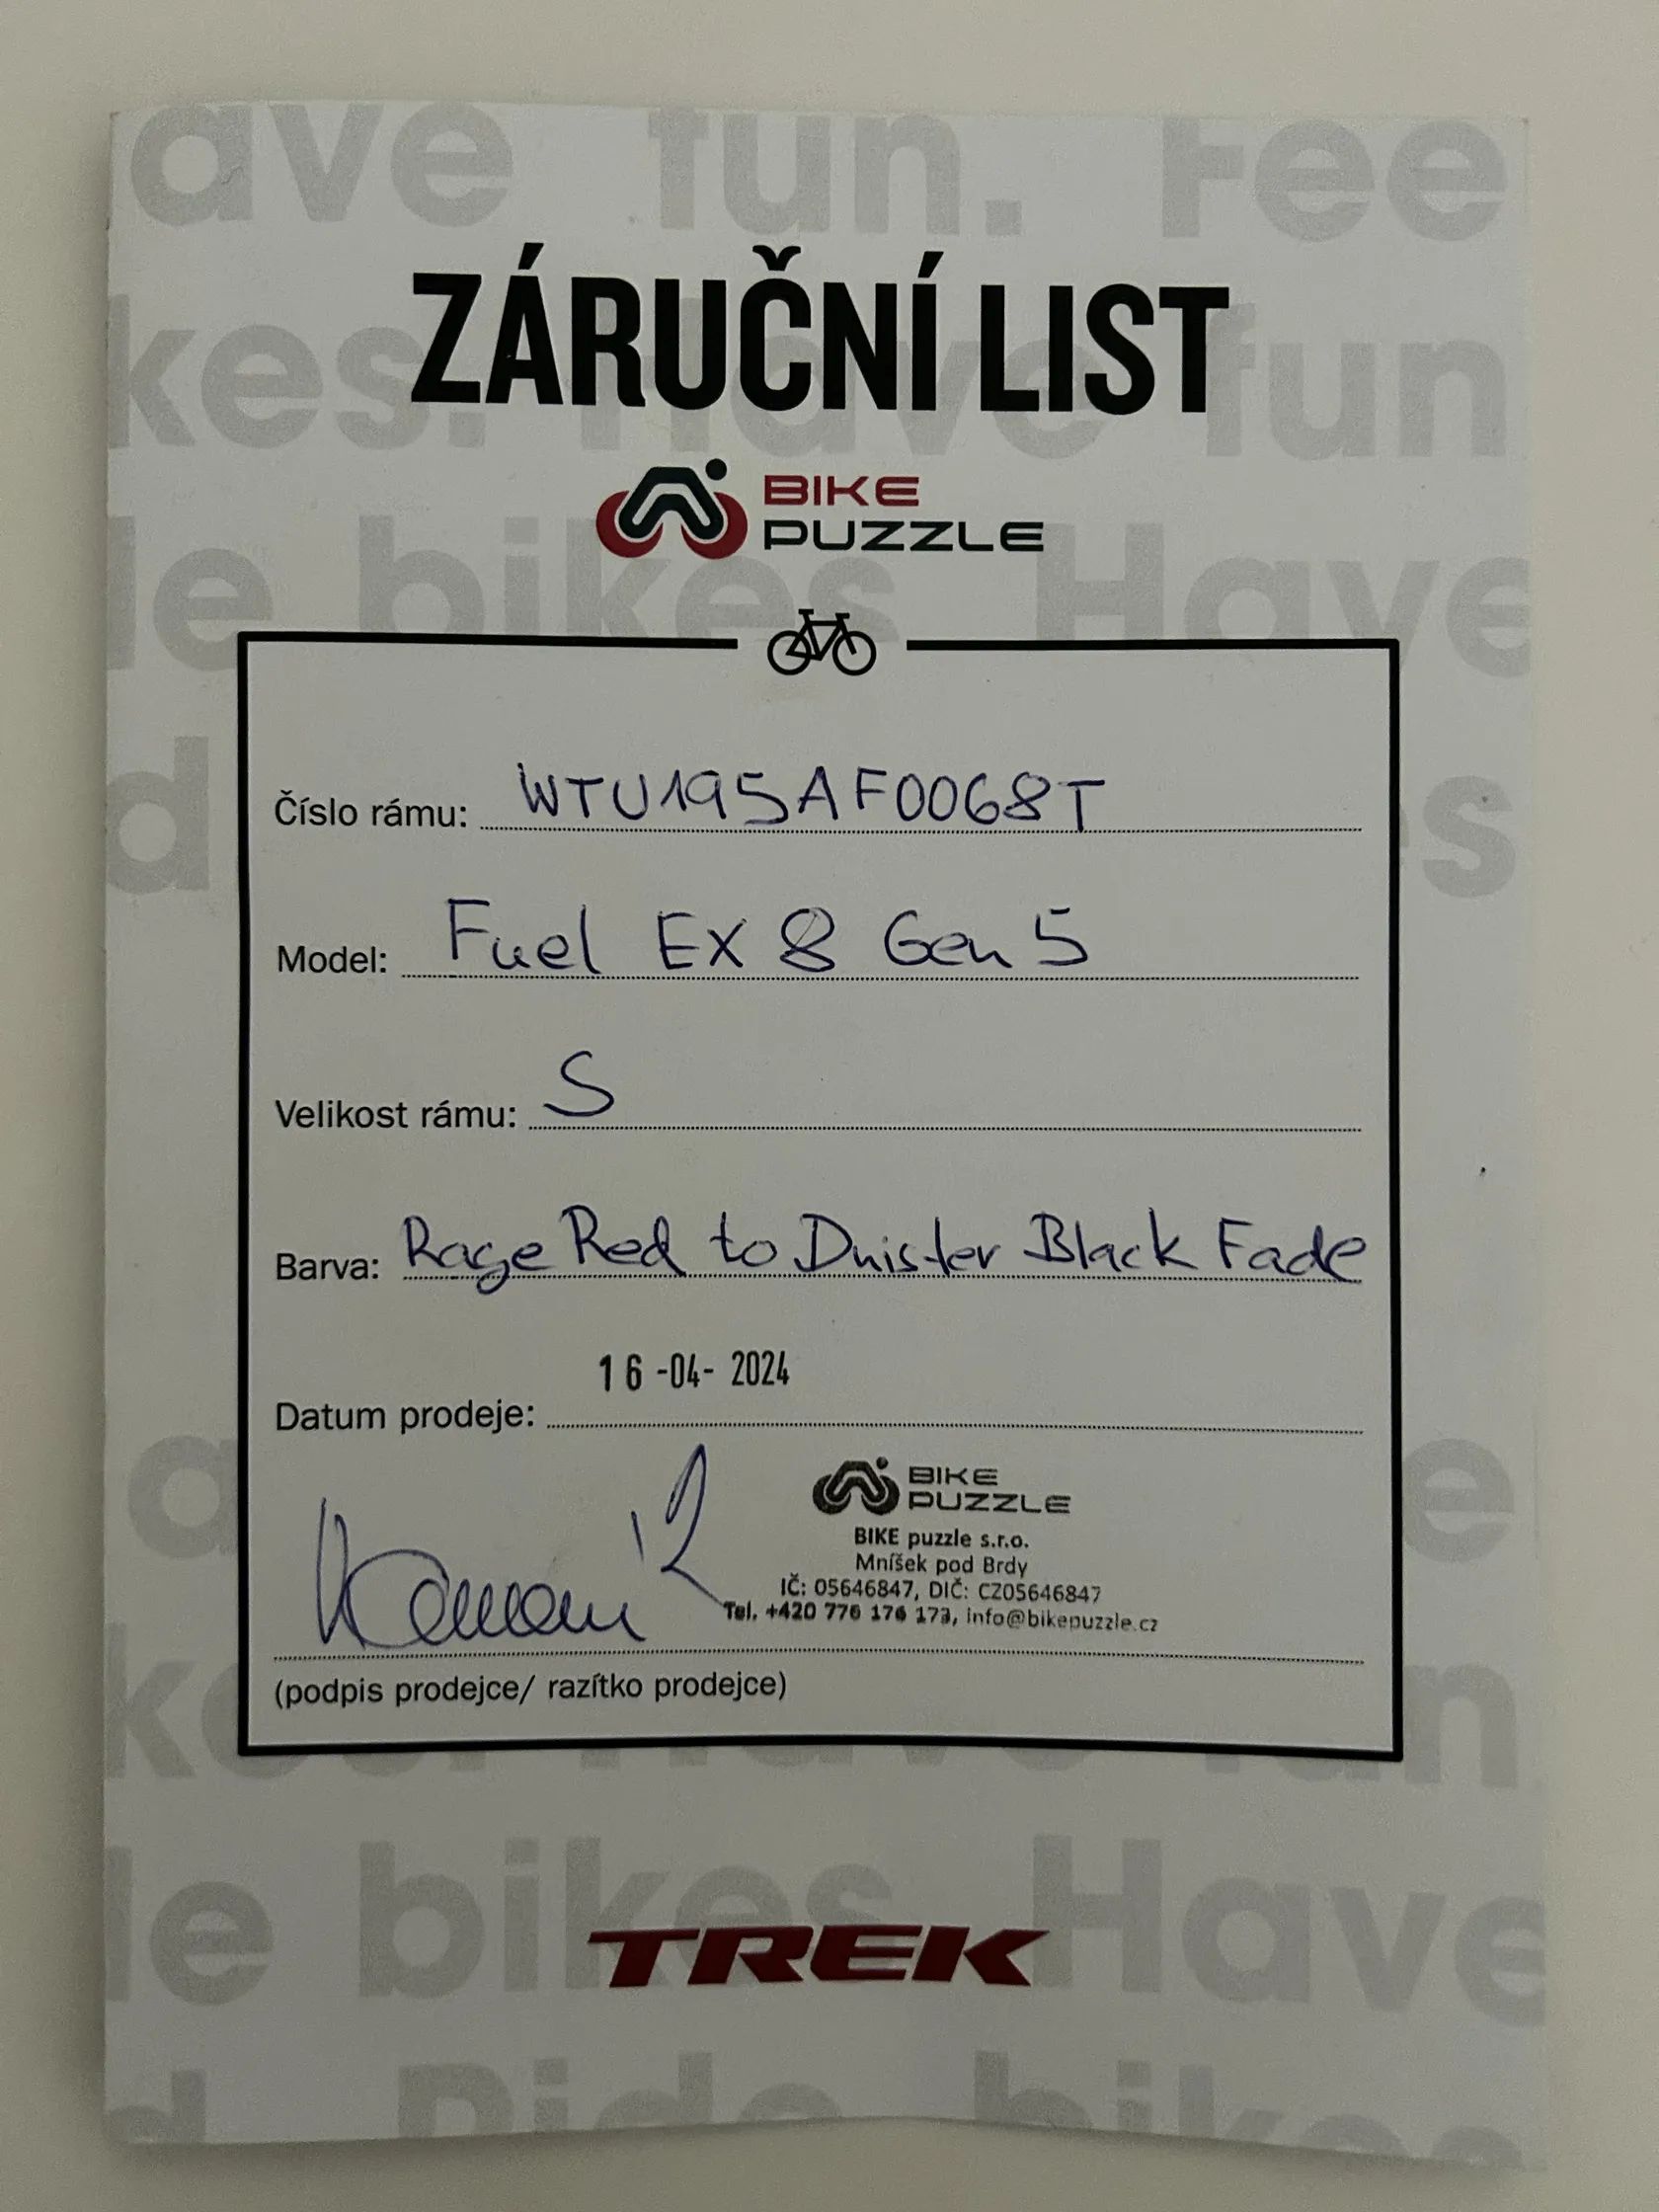 ave fun. Fee
kes. Have fun
de bikes. Have
ZÁRUČNÍ LIST
BIKE
PUZZLE
Číslo rámu: WTU195AF0068T
Model: Fuel EX 8 Gen 5
Velikost rámu: S
Barva: Rage Red to Dnister Black Fade
16 -04- 2024
Datum prodeje:
BIKE
PUZZLE
BIKE puzzle s.r.o.
Mníšek pod Brdy
IČ: 05646847, DIČ: CZ05646847
Tel. +420 776 176 173, info@bikepuzzle.cz
(podpis prodejce/ razítko prodejce)
de bikes. Have
TREK
d. Ride bikes